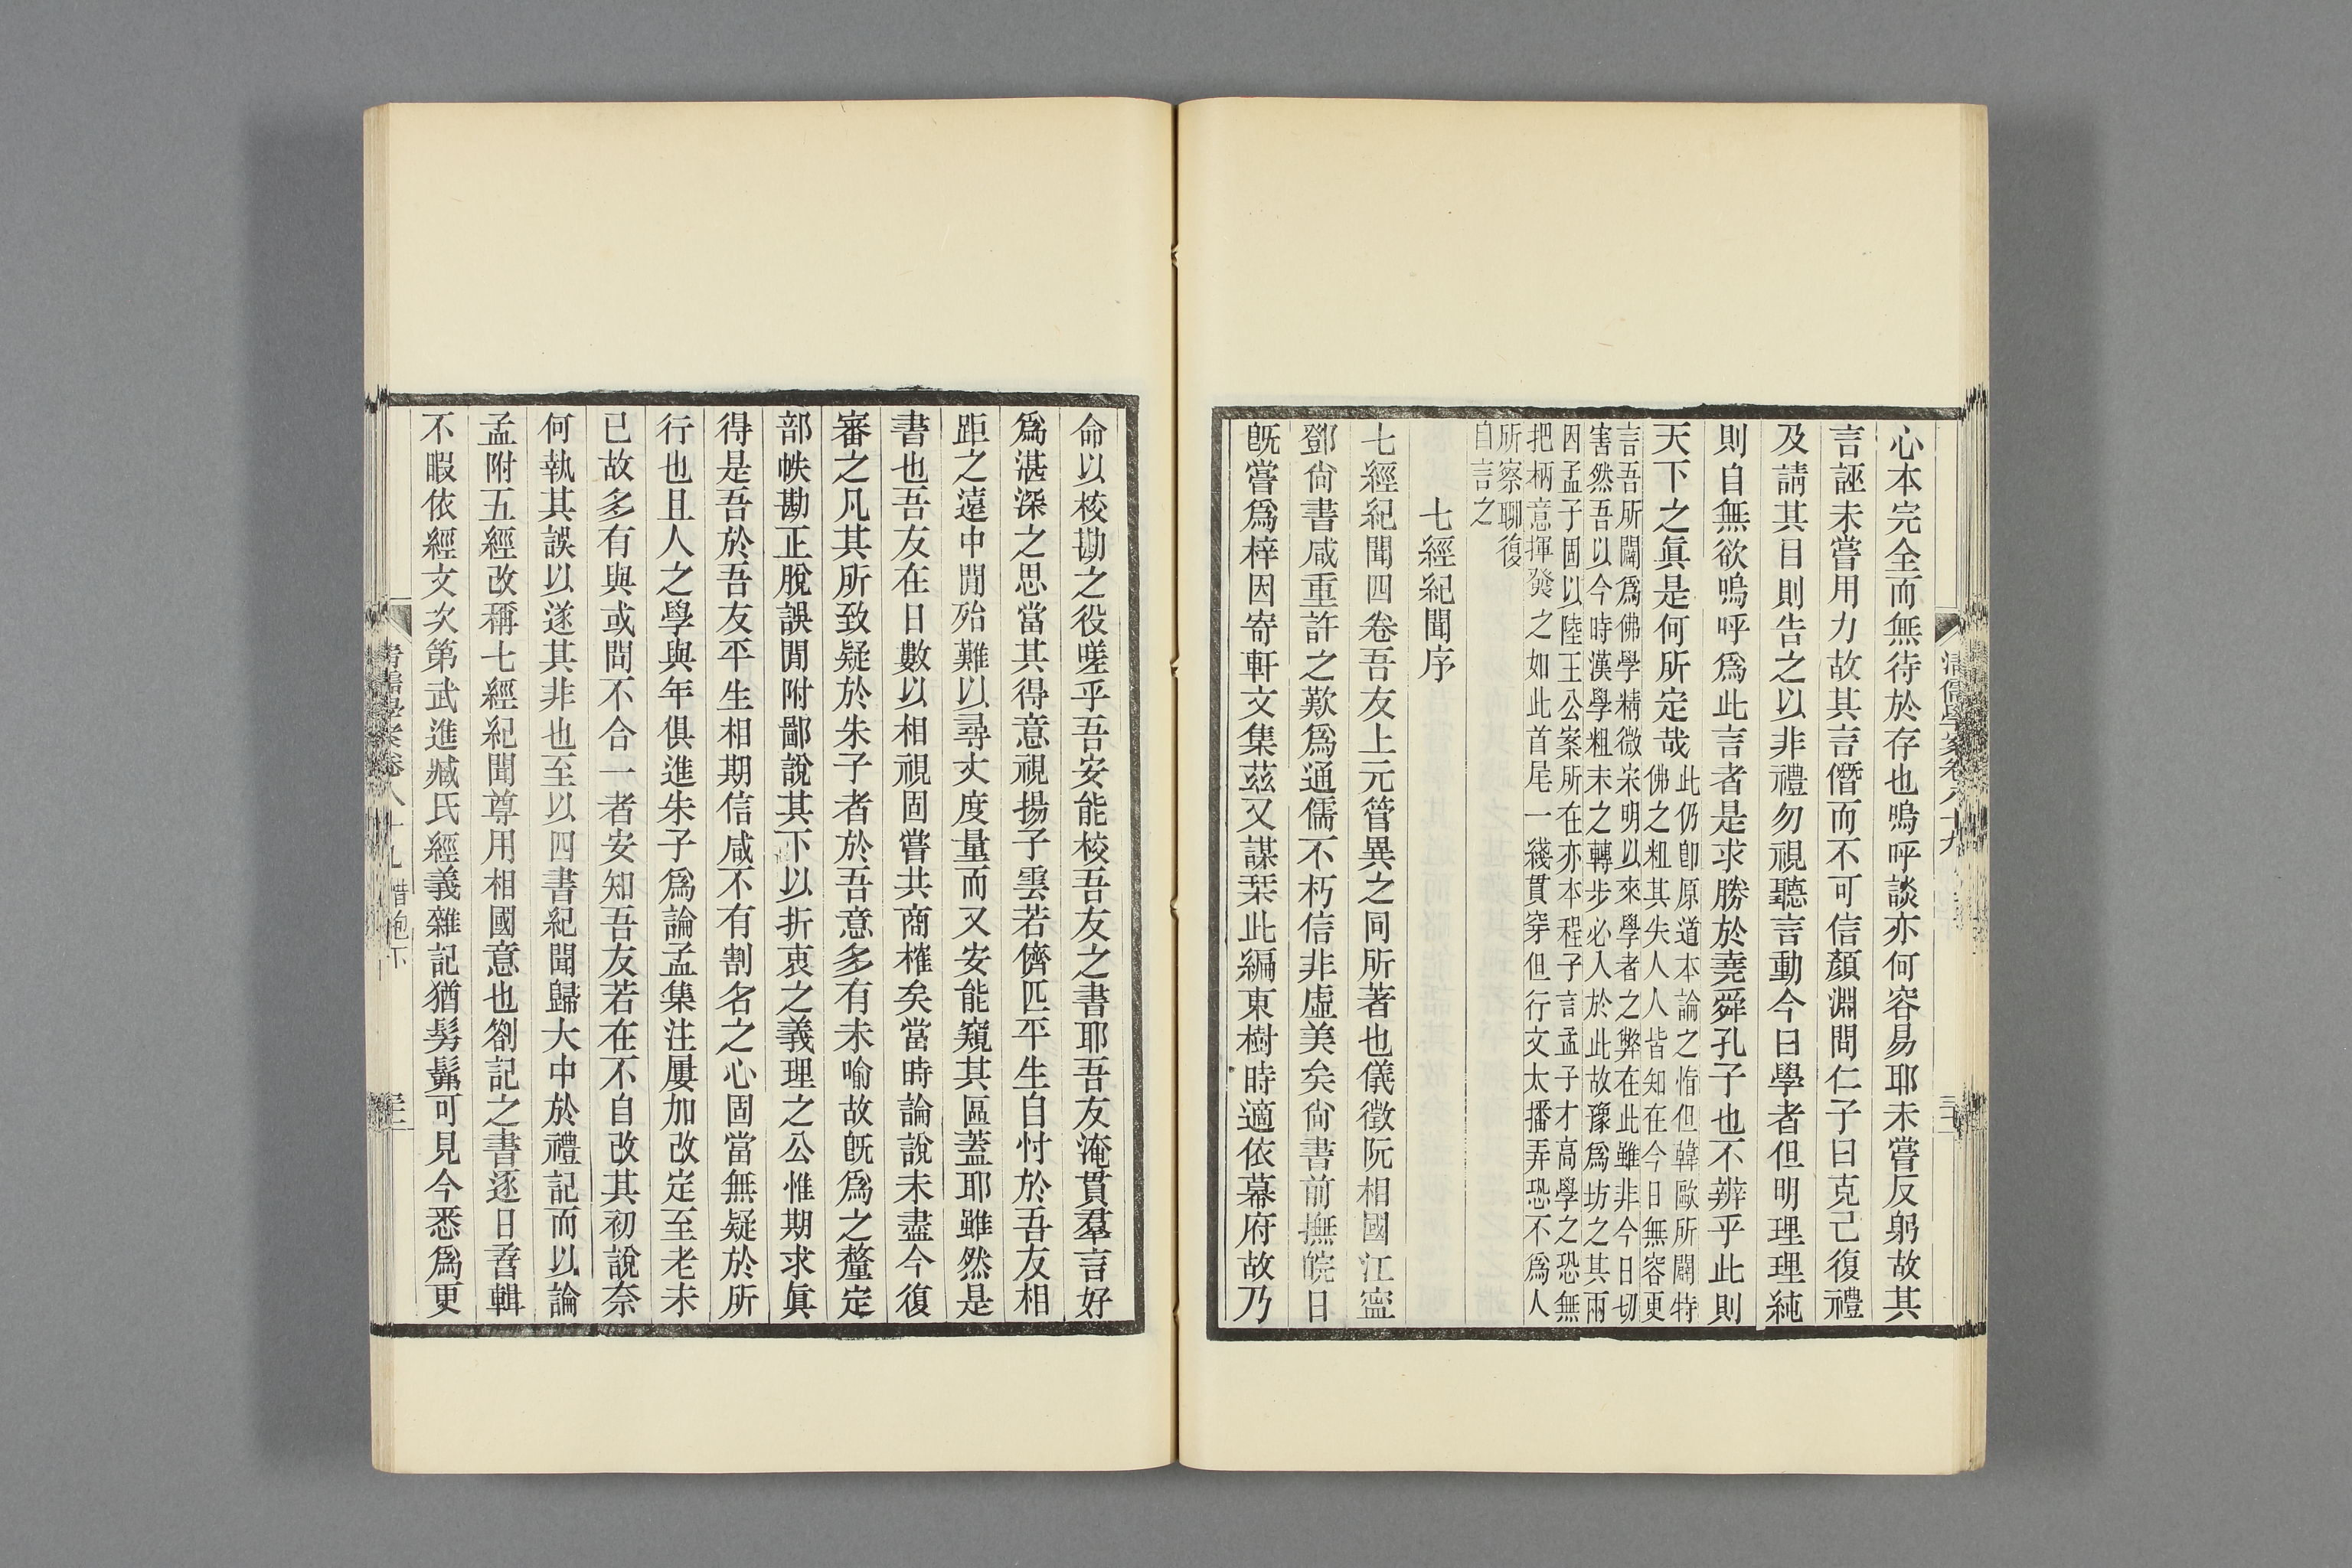 心本完全而無待於存也嗚呼談亦何容易耶未嘗反躬故其
言誣未嘗用力故其言僭而不可信顏淵問仁子曰克己復禮
及請其目則告之以非禮勿視聽言動今日學者但明理理純
則自無欲嗚呼爲此言者是求勝於堯舜孔子也不辨乎此則
天下之眞是何所定哉此仍卽原道本論之恉但韓歐所闢特
佛之粗其失人人皆知在今日無容更
言吾所闢爲佛學精微宋明以來學者之弊在此雖非今日切
害然吾以今時漢學粗末之轉步必入於此故豫爲坊之其兩
因孟子固以陸王公案所在亦本程子言孟子才高學之恐無
把柄意揮發之如此首尾一綫貫穿但行文太播弄恐不爲人
所察聊復
自言之
七經紀聞序
七經紀聞四卷吾友上元管異之同所著也儀徵阮相國江寧
鄧尙書咸重許之歎爲通儒不朽信非虛美矣尙書前撫皖日
旣嘗爲梓因寄軒文集茲又謀栞此編東樹時適依幕府故乃
命以校勘之役嗟乎吾安能校吾友之書耶吾友淹貫羣言好
爲湛深之思當其得意視揚子雲若儕匹平生自忖於吾友相
距之遠中閒殆難以尋丈度量而又安能窺其區蓋耶雖然是
書也吾友在日數以相視固嘗共商榷矣當時論說未盡今復
審之凡其所致疑於朱子者於吾意多有未喻故旣爲之釐定
部帙勘正脫誤閒附鄙說其下以折衷之義理之公惟期求眞
得是吾於吾友平生相期信咸不有割名之心固當無疑於所
行也且人之學與年俱進朱子爲論孟集注屢加改定至老未
已故多有與或問不合一者安知吾友若在不自改其初說奈
何執其誤以遂其非也至以四書紀聞歸大中於禮記而以論
孟附五經改稱七經紀聞尊用相國意也劄記之書逐日沓輯
不暇依經文次第武進臧氏經義雜記猶髣髴可見今悉爲更
清儒學案卷八十九